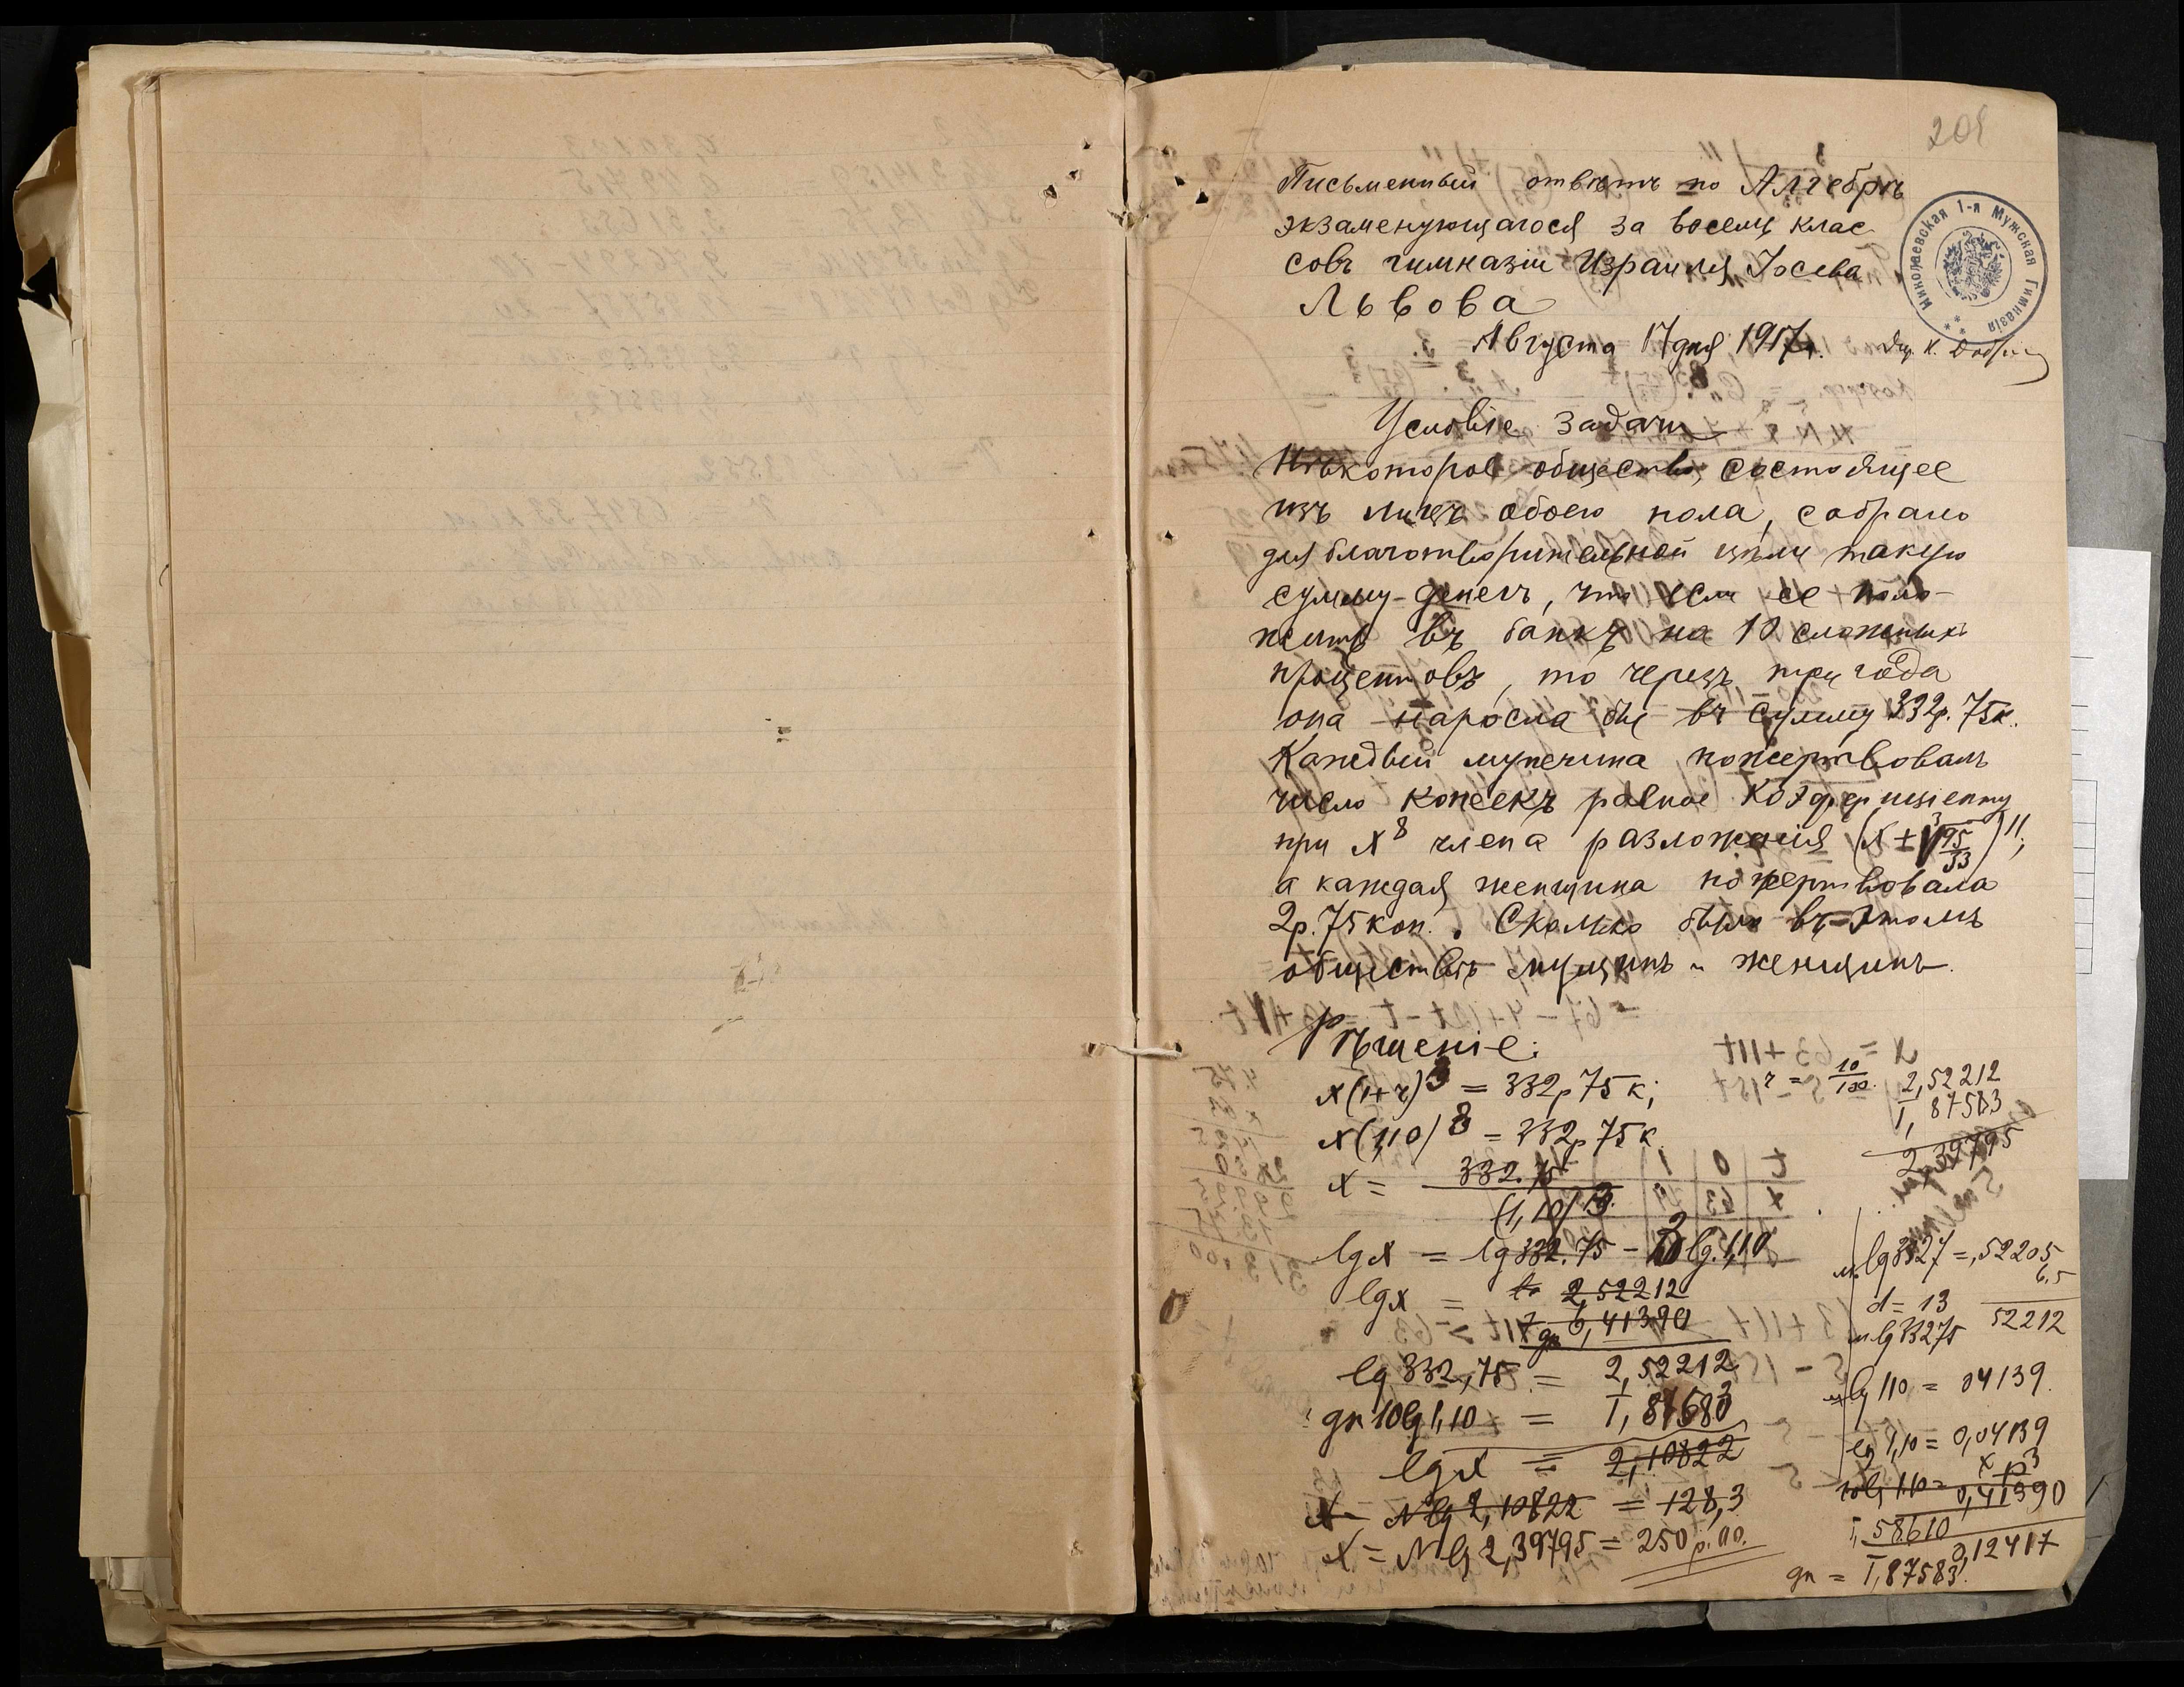 201
Письменный отвѣтъ по Алгебрѣ
экзаменующагося за восемь клас
совъ гимназіи Израиля Іосева
Львова
Августа 17 дня 1917 г.
Николаевская 1-я Мужская Гимназія
Условіе задачи
Нѣкоторое общество, состоящее
изъ лицъ обоего пола, собрало
для благотворительной цѣли такую
сумму денегъ, что если ее поло-
жить въ банкъ на 10 сложныхъ
процентовъ, то черезъ три года
она наросла бы въ сумму 332р. 75к.
Каждый мужчина пожертвовалъ
число копеекъ равное коэффиціенту
при x⁸ члена разложенія (x + ∛95/33)¹¹;
а каждая женщина пожертвовала
2р. 75 коп. . Сколько было въ этомъ
обществѣ мущинъ и женщинъ.
Рѣшеніе:
x(1+r)³ = 332р 75 к; r = 10/100.
x(1,10)³ = 332р 75 к
x = 332.75 / (1,10)³.
lgx = lg 332.75 – 3 lg. 1,10
lgx = 2,52212
0,41390
lg 332,75 = 2,52212
дп 10 lg 1,10 = 1,87583
lgx = 2,10822
x = Nlg 2,10822 = 128,3
x = Nlg 2,39795 = 250 р. 00.
2,52212
1,87583
2,39795
mlg 3327 = ,52205
6,5
d = 13
52212
mlg 33275
mlg 110 = 04139.
lg 1,10 = 0,04139
x 3
10lg 1.10 = 0,41390
1,58610
0,12417
дп = 1,87583.